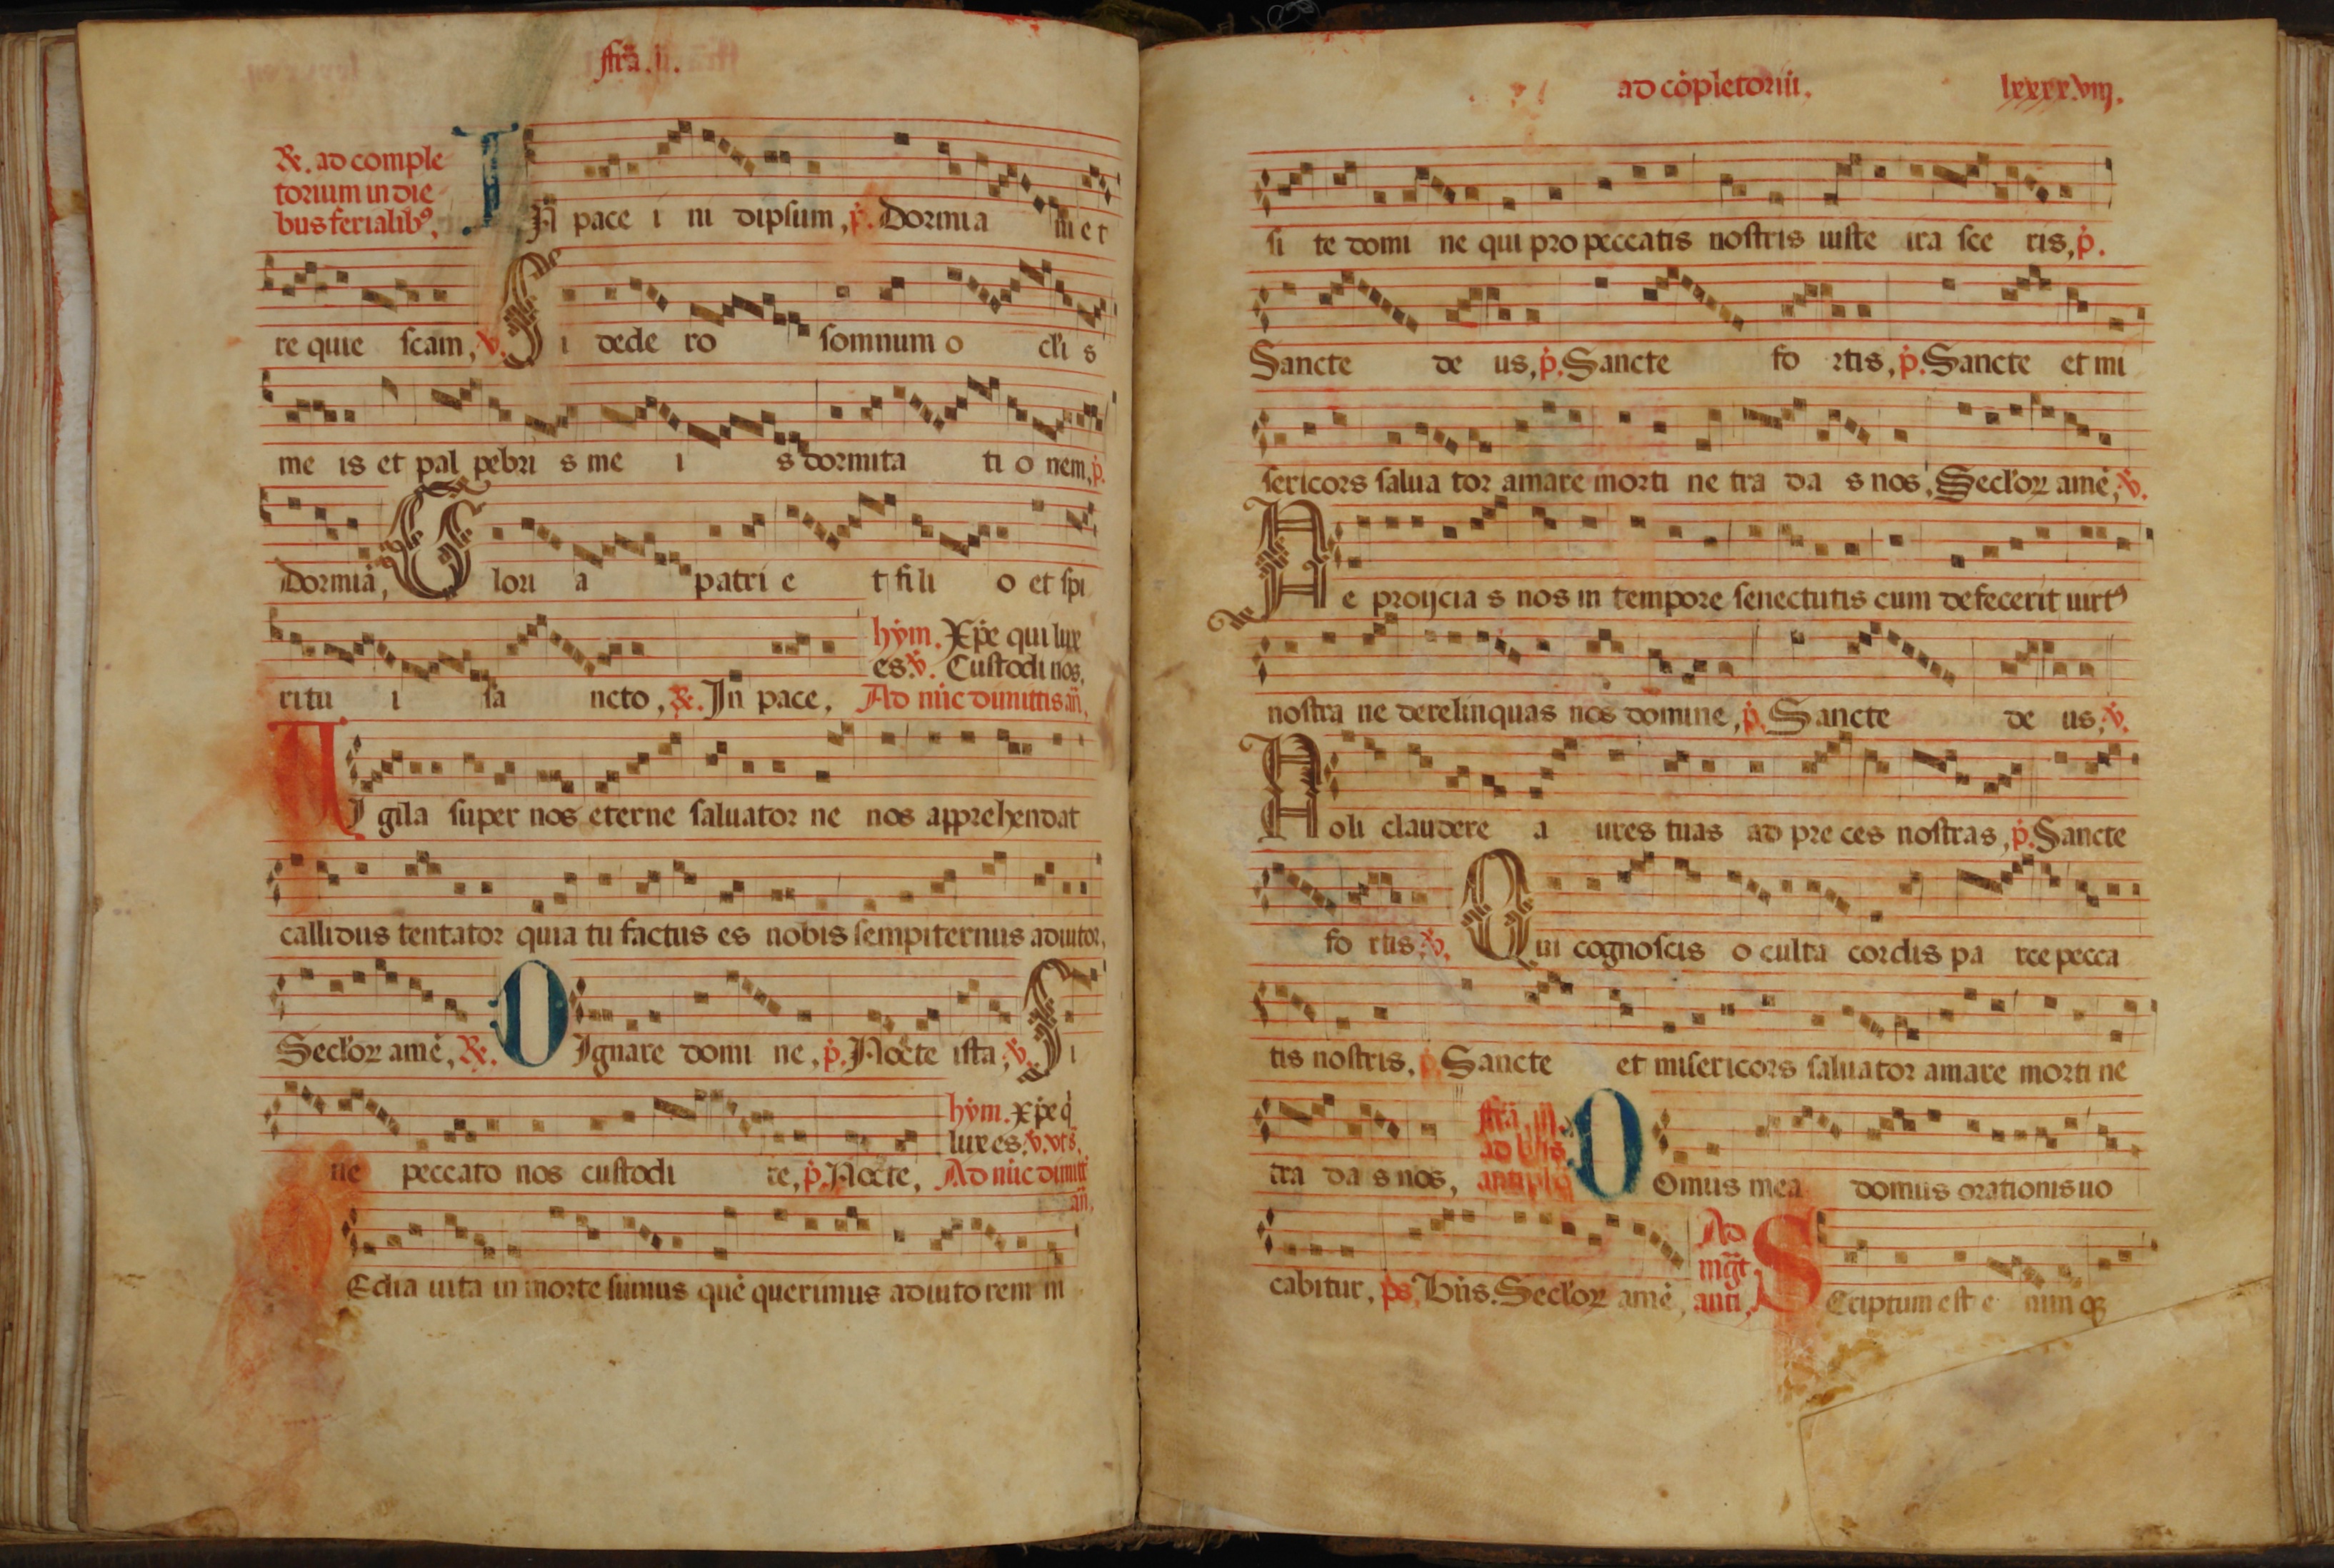 ffrã. ii.
R. ad comple
torium in die
bus ferialib9.
IN pace i ni dipsum, p. Dormia m et
re quie scam, v. Si dede ro somnum o cli s
me is et pal pebri s me i s dormita ti o nem, p.
Dormiã, Glori a patri e t fili o et spi
ritu i sa ncto, R. In pace,
hym. Xpe qui lux
es. v. Custodi nos,
Ad nũc dimittis añ,
VIgila super nos eterne saluator ne nos apprehendat
callidus tentator quia tu factus es nobis sempiternus adiutor,
Seclor amẽ, R. DIgnare domi ne, p. Nocte ista, v. Si
ne peccato nos custodi re, p. Nocte,
hym. Xpe q
lux es. v. vt s.
Ad nũc dimitt
añ,
Edia uita in morte sumus quẽ querimus adiuto rem ni
ad cõpletoriũ.
lxxxxviij.
si te domi ne qui pro peccatis nostris iuste ira sce ris, p.
Sancte de us, p. Sancte fo rtis, p. Sancte et mi
sericors salua tor amare morti ne tra da s nos, Seclor amẽ, v.
Ne proijcia s nos in tempore senectutis cum defecerit uirt9
nostra ne derelinquas nos domine, p. Sancte de us, v.
Noli claudere a ures tuas ad pre ces nostras, p. Sancte
fo rtis, v. Qui cognoscis o culta cordis pa rce pecca
tis nostris, p. Sancte et misericors saluator amare morti ne
tra da s nos,
ffrã. iij.
DOmus mea domus orationis uo
cabitur, ps. Bñs. Seclor amẽ,
Ad
mgt
anti,
SCriptum est e nim q